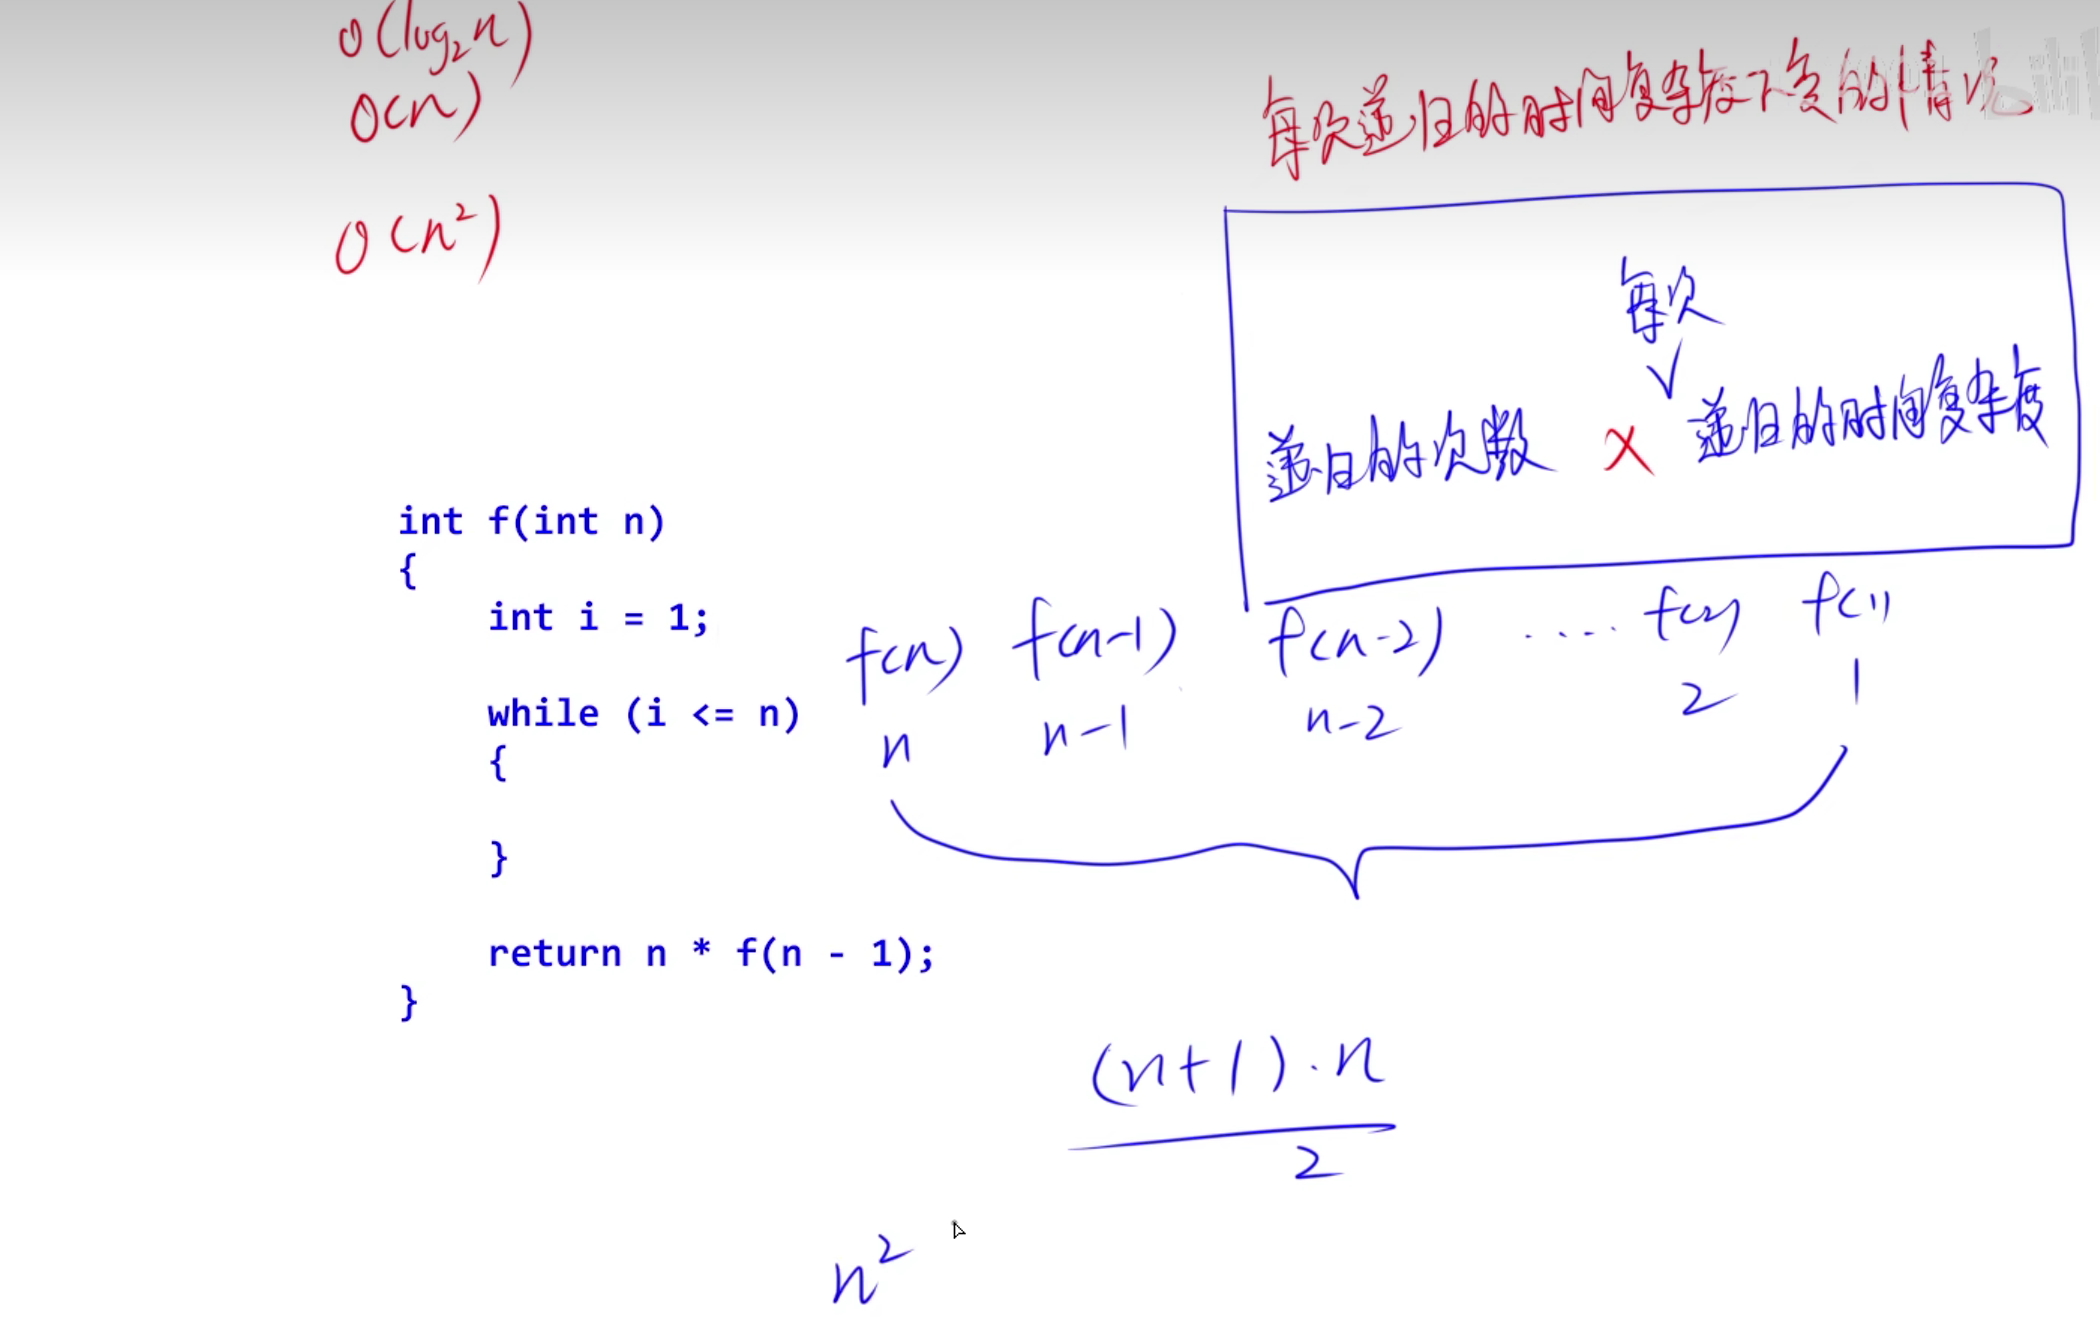 O(log₂n)
O(n)
O(n²)
每次递归的时间复杂度不变的情况
每次
递归的次数 × 递归的时间复杂度
int f(int n)
{
int i = 1;
while (i <= n)
{
}
return n * f(n - 1);
}
f(n) f(n-1) f(n-2) ..... f(2) f(1)
n n-1 n-2 2 1
(n+1)·n
2
n²